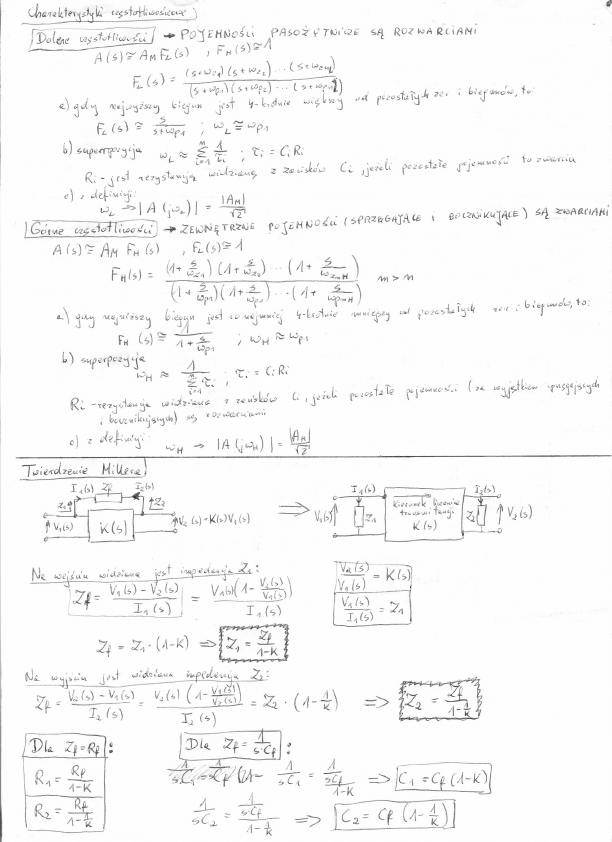 Charakterystyki częstotliwościowe
Dolne częstotliwości → POJEMNOŚCI PASOŻYTNICZE SĄ ROZWARCIAMI
A(s) ≅ A_M F_L(s) , F_H(s) ≅ 1
F_L(s) = (s+ω_z1)(s+ω_z2)...(s+ω_zn) / (s+ω_p1)(s+ω_p2)...(s+ω_pn)
a) gdy najwyższy biegun jest 4-krotnie większy od pozostałych zer i biegunów, to:
F_L(s) ≅ s/(s+ω_p1) ; ω_L ≅ ω_p1
b) superpozycja ω_L ≈ Σ_{i=1}^{m} 1/τ_i ; τ_i = C_i R_i
R_i - jest rezystancją widzianą z zacisków C_i, jeżeli pozostałe pojemności to zwarcia
c) z definicji
ω_L → |A(jω_L)| = |A_M|/√2
Górne częstotliwości → ZEWNĘTRZNE POJEMNOŚCI (SPRZĘGAJĄCE I BOCZNIKUJĄCE) SĄ ZWARCIAMI
A(s) ≅ A_M F_H(s) , F_L(s) ≅ 1
F_H(s) = (1+s/ω_z1)(1+s/ω_z2)...(1+s/ω_znH) / (1+s/ω_p1)(1+s/ω_p2)...(1+s/ω_pmH) m > n
a) gdy najniższy biegun jest co najmniej 4-krotnie mniejszy od pozostałych zer i biegunów, to:
F_H(s) ≅ 1/(1+s/ω_p1) ; ω_H ≈ ω_p1
b) superpozycja
ω_H ≈ 1/Σ_{i=1}^{m} τ_i ; τ_i = C_i R_i
R_i - rezystancja widziana z zacisków C_i, jeżeli pozostałe pojemności (za wyjątkiem sprzęgających
i bocznikujących) są rozwarciami
c) z definicji:
ω_H → |A(jω_H)| = |A_M|/√2
Twierdzenie Millera
I_1(s) Z_f I_2(s)
Z_1 Z_2
V_1(s) K(s) V_2(s)=K(s)V_1(s)
⟹
I_1(s) I_2(s)
V_1(s) Z_1 kierunek liczenia transmitancji K(s) Z_2 V_2(s)
Na wejściu widziana jest impedancja Z_1:
Z_f = (V_1(s) - V_2(s))/I_1(s) = V_1(s)(1 - V_2(s)/V_1(s))/I_1(s)
V_2(s)/V_1(s) = K(s)
V_1(s)/I_1(s) = Z_1
Z_f = Z_1·(1-K) ⟹ Z_1 = Z_f/(1-K)
Na wyjściu jest widziana impedancja Z_2:
Z_f = (V_2(s) - V_1(s))/I_2(s) = V_2(s)(1 - V_1(s)/V_2(s))/I_2(s) = Z_2·(1-1/K) ⟹ Z_2 = Z_f/(1-1/K)
Dla Z_f=R_f :
R_1 = R_f/(1-K)
R_2 = R_f/(1-1/K)
Dla Z_f = 1/(s·C_f) :
1/(sC_1) = (1/(sC_f))/(1-K) ⟹ C_1 = C_f(1-K)
1/(sC_2) = (1/(s·C_f))/(1-1/K) ⟹ C_2 = C_f(1-1/K)